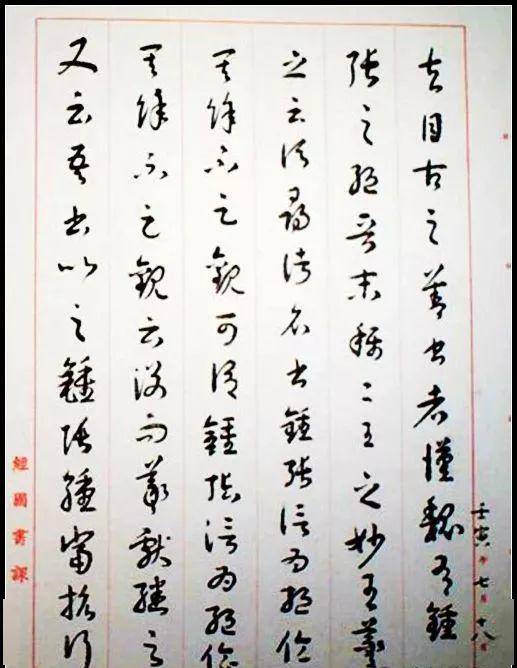 壬寅年七月十八日
夫自古之善書者漢魏有鍾
張之絕晉末稱二王之妙王羲
之云頃尋諸名書鍾張信為絕倫
其餘不足觀可謂鍾張信為絕倫
其餘不足觀云沒而羲獻繼之
又云吾書比之鍾張鍾當抗行
經國書課